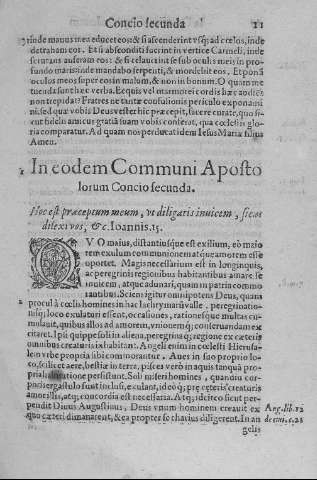 Concio secunda 21
inde manus mea educet eos: & si ascenderint vsq; ad cœlos, inde
detraham eos. Et si absconditi fuerint in vertice Carmeli, inde
scrutans auferam eos: & si celauerint se sub oculis meis in pro-
fundo maris: inde mandabo serpenti, & mordebit eos. Et ponā
oculos meos super eos in malum, & non in bonum. O quam me
tuenda sunt hæc verba. Ecquis vel marmorei cordis hæc audiēs
non trepidat? Fratres ne tantæ confusionis periculo exponami
ni. sed quæ vobis Deus vester hic præcepit, facere curate, quo si-
cut fidelis amicus gratiā suam vobis conferat, qua cœlestis glo-
ria comparatur. Ad quam nos perducat idem Iesus Mariæ filius
Amen.
In eodem Communi Aposto
lorum Concio secunda.
Hoc est præceptum meum, vt diligatis inuicem, sicut
dilexi vos, &c. Ioannis. 15.
QVO maius, distantiusque est exilium, eò maio
rem exulum communionem atque amorem esse
oportet. Magis necessarium est in longinquis,
ac peregrinis regionibus habitantibus amare se
inuicem, atque adunari, quam in patria commo
rantibus. Sciens igitur omnipotens Deus, quam
procul à cœlis homines in hac lachrymarū valle, peregrinatio-
nisq; loco exulaturi essent, occasiones, rationesque multas cu-
mulauit, quibus illos ad amorem, vnionemq; conseruandam ex
citaret. Ipsi quippe soli in aliena, peregrinaq; regione ex cæteris
omnibus creaturis inhabitant. Angeli enim in cœlesti Hierusa-
lem vrbe propria sibi commorantur. Aues in suo proprio lo-
co, scilicet aere, bestiæ in terra, pisces verò in aquis tanquā pro-
pria habitatione persistunt. Soli miseri homines, quandiu cor-
pūs ergastulo sunt inclusi, exulant, ideoq; præ ceteris creaturis
amor illis, atq; concordia est necessaria. Atq; idcirco sicut per-
pendit Diuus Augustinus, Deus vnum hominem creauit ex
quo cæteri dimanarent, & ea propter se charius diligerent. In an
gelis
Aug. lib. 12
de ciui. c. 21